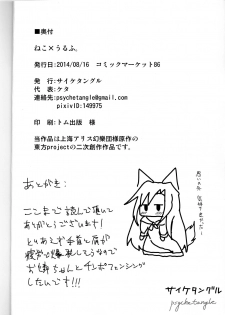 ■奥付
ねこ×うるふ。
発行日:2014/08/16　コミックマーケット86
発行:サイケタングル
代表:ケタ
連絡先:psychetangle@gmail.com
pixivID:149975
印刷:トム出版　様
当作品は上海アリス幻樂団様原作の
東方projectの二次創作作品です。
あとがき:
ここまで読んで頂いて
ありがとうございます!
とりあえず手首と肩が
疲労で爆発してしうなので
お姉ちゃんとチンポフェンシング
したいです!!!
サイケタングル
psychetangle